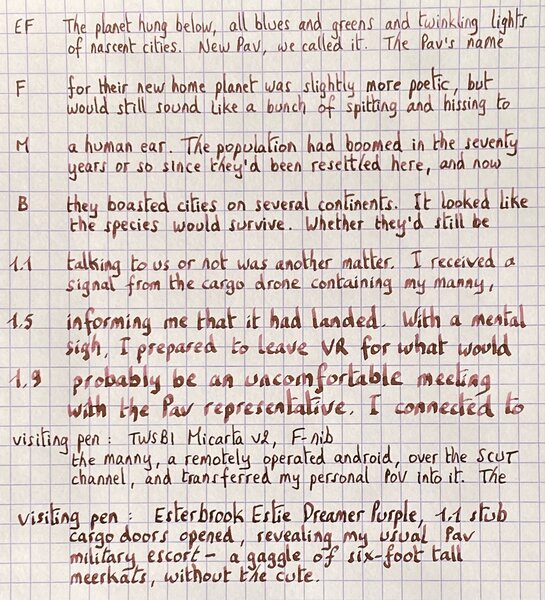 EF The planet hung below, all blues and greens and twinkling lights
of nascent cities. New Pav, we called it. The Pav's name
F for their new home planet was slightly more poetic, but
would still sound like a bunch of spitting and hissing to
M a human ear. The population had boomed in the seventy
years or so since they'd been resettled here, and now
B they boasted cities on several continents. It looked like
the species would survive. Whether they'd still be
1.1 talking to us or not was another matter. I received a
signal from the cargo drone containing my manny,
1.5 informing me that it had landed. With a mental
sigh, I prepared to leave VR for what would
1.9 probably be an uncomfortable meeting
with the Pav representative. I connected to
visiting pen : TWSBI Micarta v2, F-nib
the manny, a remotely operated android, over the SCUT
channel, and transferred my personal PoV into it. The
visiting pen : Esterbrook Estie Dreamer Purple, 1.1 stub
cargo doors opened, revealing my usual Pav
military escort – a gaggle of six-foot tall
meerkats, without the cute.